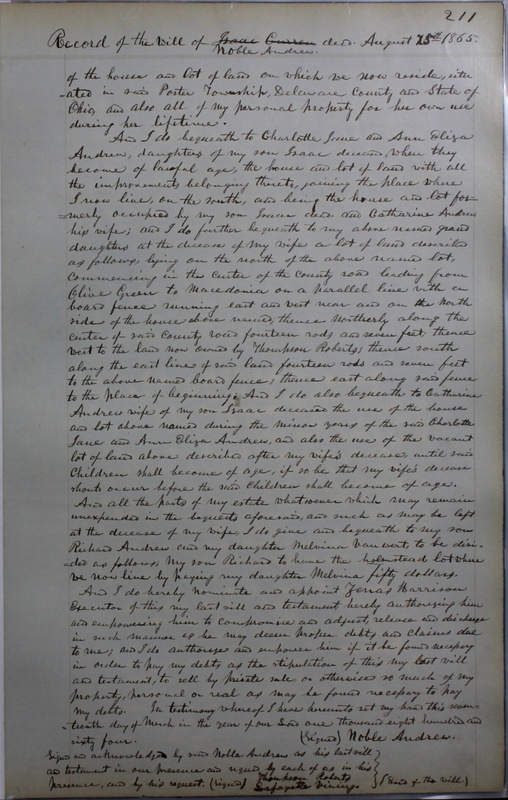 211
Record of the Will of Isaac Curren decd. August 25th 1865.
Noble Andrew.
of the house and lot of land on which we now reside, situ
ated in said Porter Township, Delaware County and State of
Ohio, and also all of my personal property for her own use
during her lifetime.
And I do bequeath to Charlotte Jane and Ann Eliza
Andrew, daughters of my son Isaac deceased, when they
become of lawful age, the house and lot of land with all
the improvements belonging thereto, joining the place where
I now live, on the south, and being the house and lot for
=merly occupied by my son Isaac decd and Catharine Andrew
his wife; and I do further bequeath to my above named grand
daughters at the decease of my wife a lot of land described
as follows, lying on the north of the above named lot,
Commencing in the center of the County road leading from
Olive Green to Macedonia on a parallel line with a
board fence running east and west near and on the North
side of the house above named, thence Northerly along the
center of said County road fourteen rods and seven feet thence
west to the land now owned by Thompson Roberts; thence south
along the east line of said land fourteen rods and seven feet
to the above named board fence; thence east along said fence
to the place of beginning; And I do also bequeath to Catharine
Andrew wife of my son Isaac deceased the use of the house
and lot above named during the minor years of the said Charlotte
Jane and Ann Eliza Andrew, and also the use of the vacant
lot of land above described after my wife's decease, until said
Children shall become of age, if so be that my wife's decease
should occur before the said Children shall become of age.
And all the parts of my estate whatsoever which may remain
unexpended in the bequests aforesaid, and such as may be left
at the decease of my wife, I do give and bequeath to my son
Richard Andrew and my daughter Melvina Vanwert, to be divi-
-ded as follows My son Richard to have the homestead lot where
we now live by paying my daughter Melvina fifty dollars.
And I do hereby nominate and appoint Harrison
Executor of this my last will and testament hereby authorising him
and empowering him to compromise and adjust, release and discharge
in such manner as he may deem proper debts and claims due
to me; and I do authorise and empower him if it be found necessary
in order to pay my debts as the stipulation of this my last will
and testament, to sell by private sale or otherwise so much of my
property, personal or real as may be found necessary to pay
my debts. In testimony whereof I have hereunto set my hand this seven-
-teenth day of March in the year of our Lord one thousand eight hundred and
sixty four. (Signed) Noble Andrew.
Signed and acknowledged by said Noble Andrew as his last will
and testament in our presence and signed by each of us in his
presence, and by his request. (Signed) Thompson Roberts
Lafayette Vining
(End of the will.)